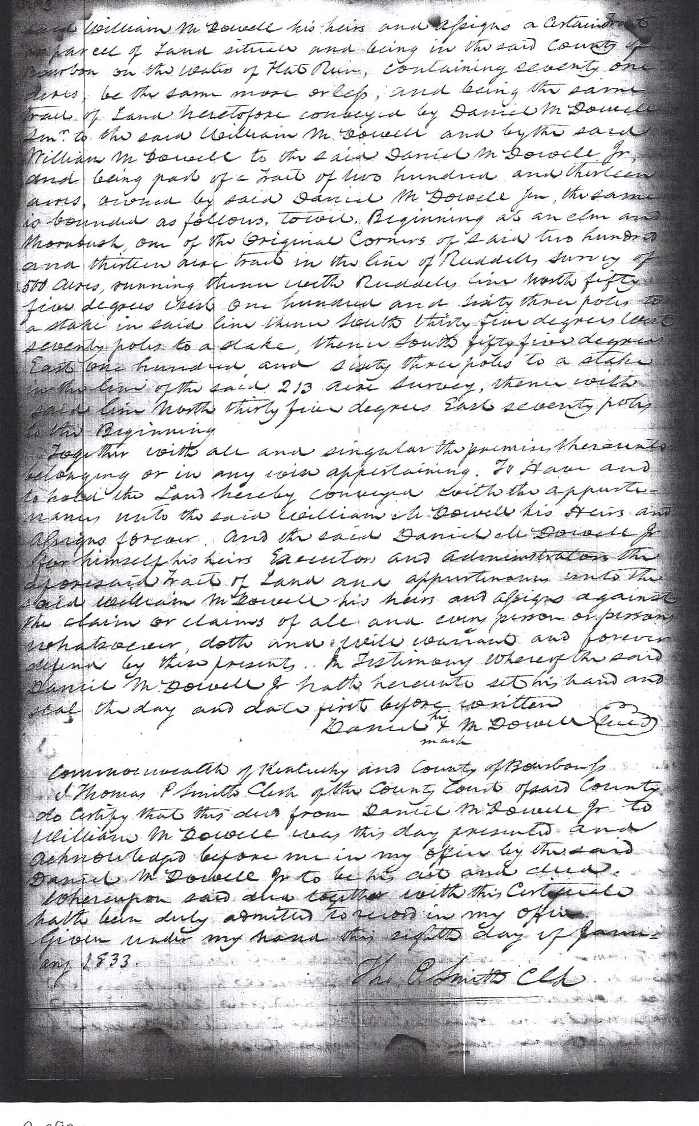 said William McDowell his heirs and Assigns a Certain Tract
or parcel of Land situate and being in the said County of
Bourbon on the Waters of Flat Run, containing seventy one
acres, be the same more or less, and being the same
tract of Land heretofore conveyed by Daniel McDowell
Senr. to the said William McDowell and by the said
William McDowell to the said Daniel McDowell Jr,
and being part of a Tract of two hundred and thirteen
acres, owned by said Daniel McDowell Jun, the same
is bounded as follows, towit, Beginning at an elm and
thornbush, one of the Original Corners of said two hundred
and thirteen acre tract in the line of Ruddells survey of
500 Acres, running thence with Ruddells line North fifty
five degrees West One hundred and sixty three poles to
a stake in said line thence South thirty five degrees West
seventy poles to a stake, thence South fifty five degrees
East one hundred and sixty three poles to a stake
in the line of the said 213 acre survey, thence with
said line North thirty five degrees East seventy poles
to the Beginning
Together with all and singular the premises thereunto
belonging or in any wise appertaining. To Have and
to hold the Land hereby conveyed with the appurte-
nances unto the said William McDowell his Heirs and
Assigns forever. And the said Daniel McDowell Jr
for himself his heirs Executors and administrators the
aforesaid tract of Land and appurtenances unto the
said William McDowell his heirs and Assigns against
the claim or claims of all and every person or persons
whatsoever, doth and will warrant and forever
defend by these presents. In Testimony Whereof the said
Daniel McDowell Jr hath hereunto set his hand and
seal the day and date first before written
Daniel his X McDowell (Seal)
mark
Commonwealth of Kentucky and County of Bourbon ss
I Thomas P Smith Clerk of the County Court of said County
do Certify that this deed from Daniel McDowell Jr to
William McDowell was this day presented and
acknowledged before me in my office by the said
Daniel McDowell Jr to be his act and deed.
Whereupon said deed together with this Certificate
hath been duly admitted to record in my office
Given under my hand this eighth day of Janu-
ary 1833.
Tho. P. Smith Clk